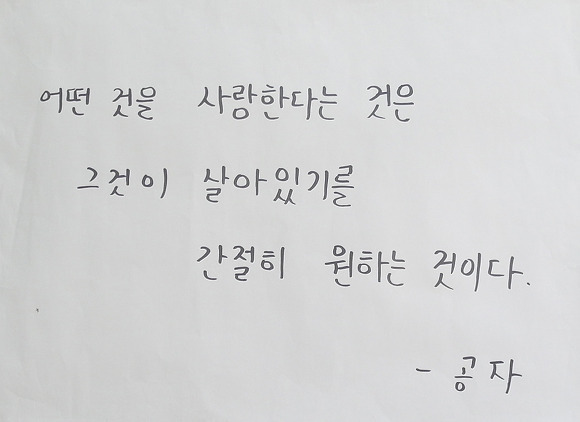 어떤 것을 사랑한다는 것은
그것이 살아있기를
간절히 원하는 것이다.
- 공자